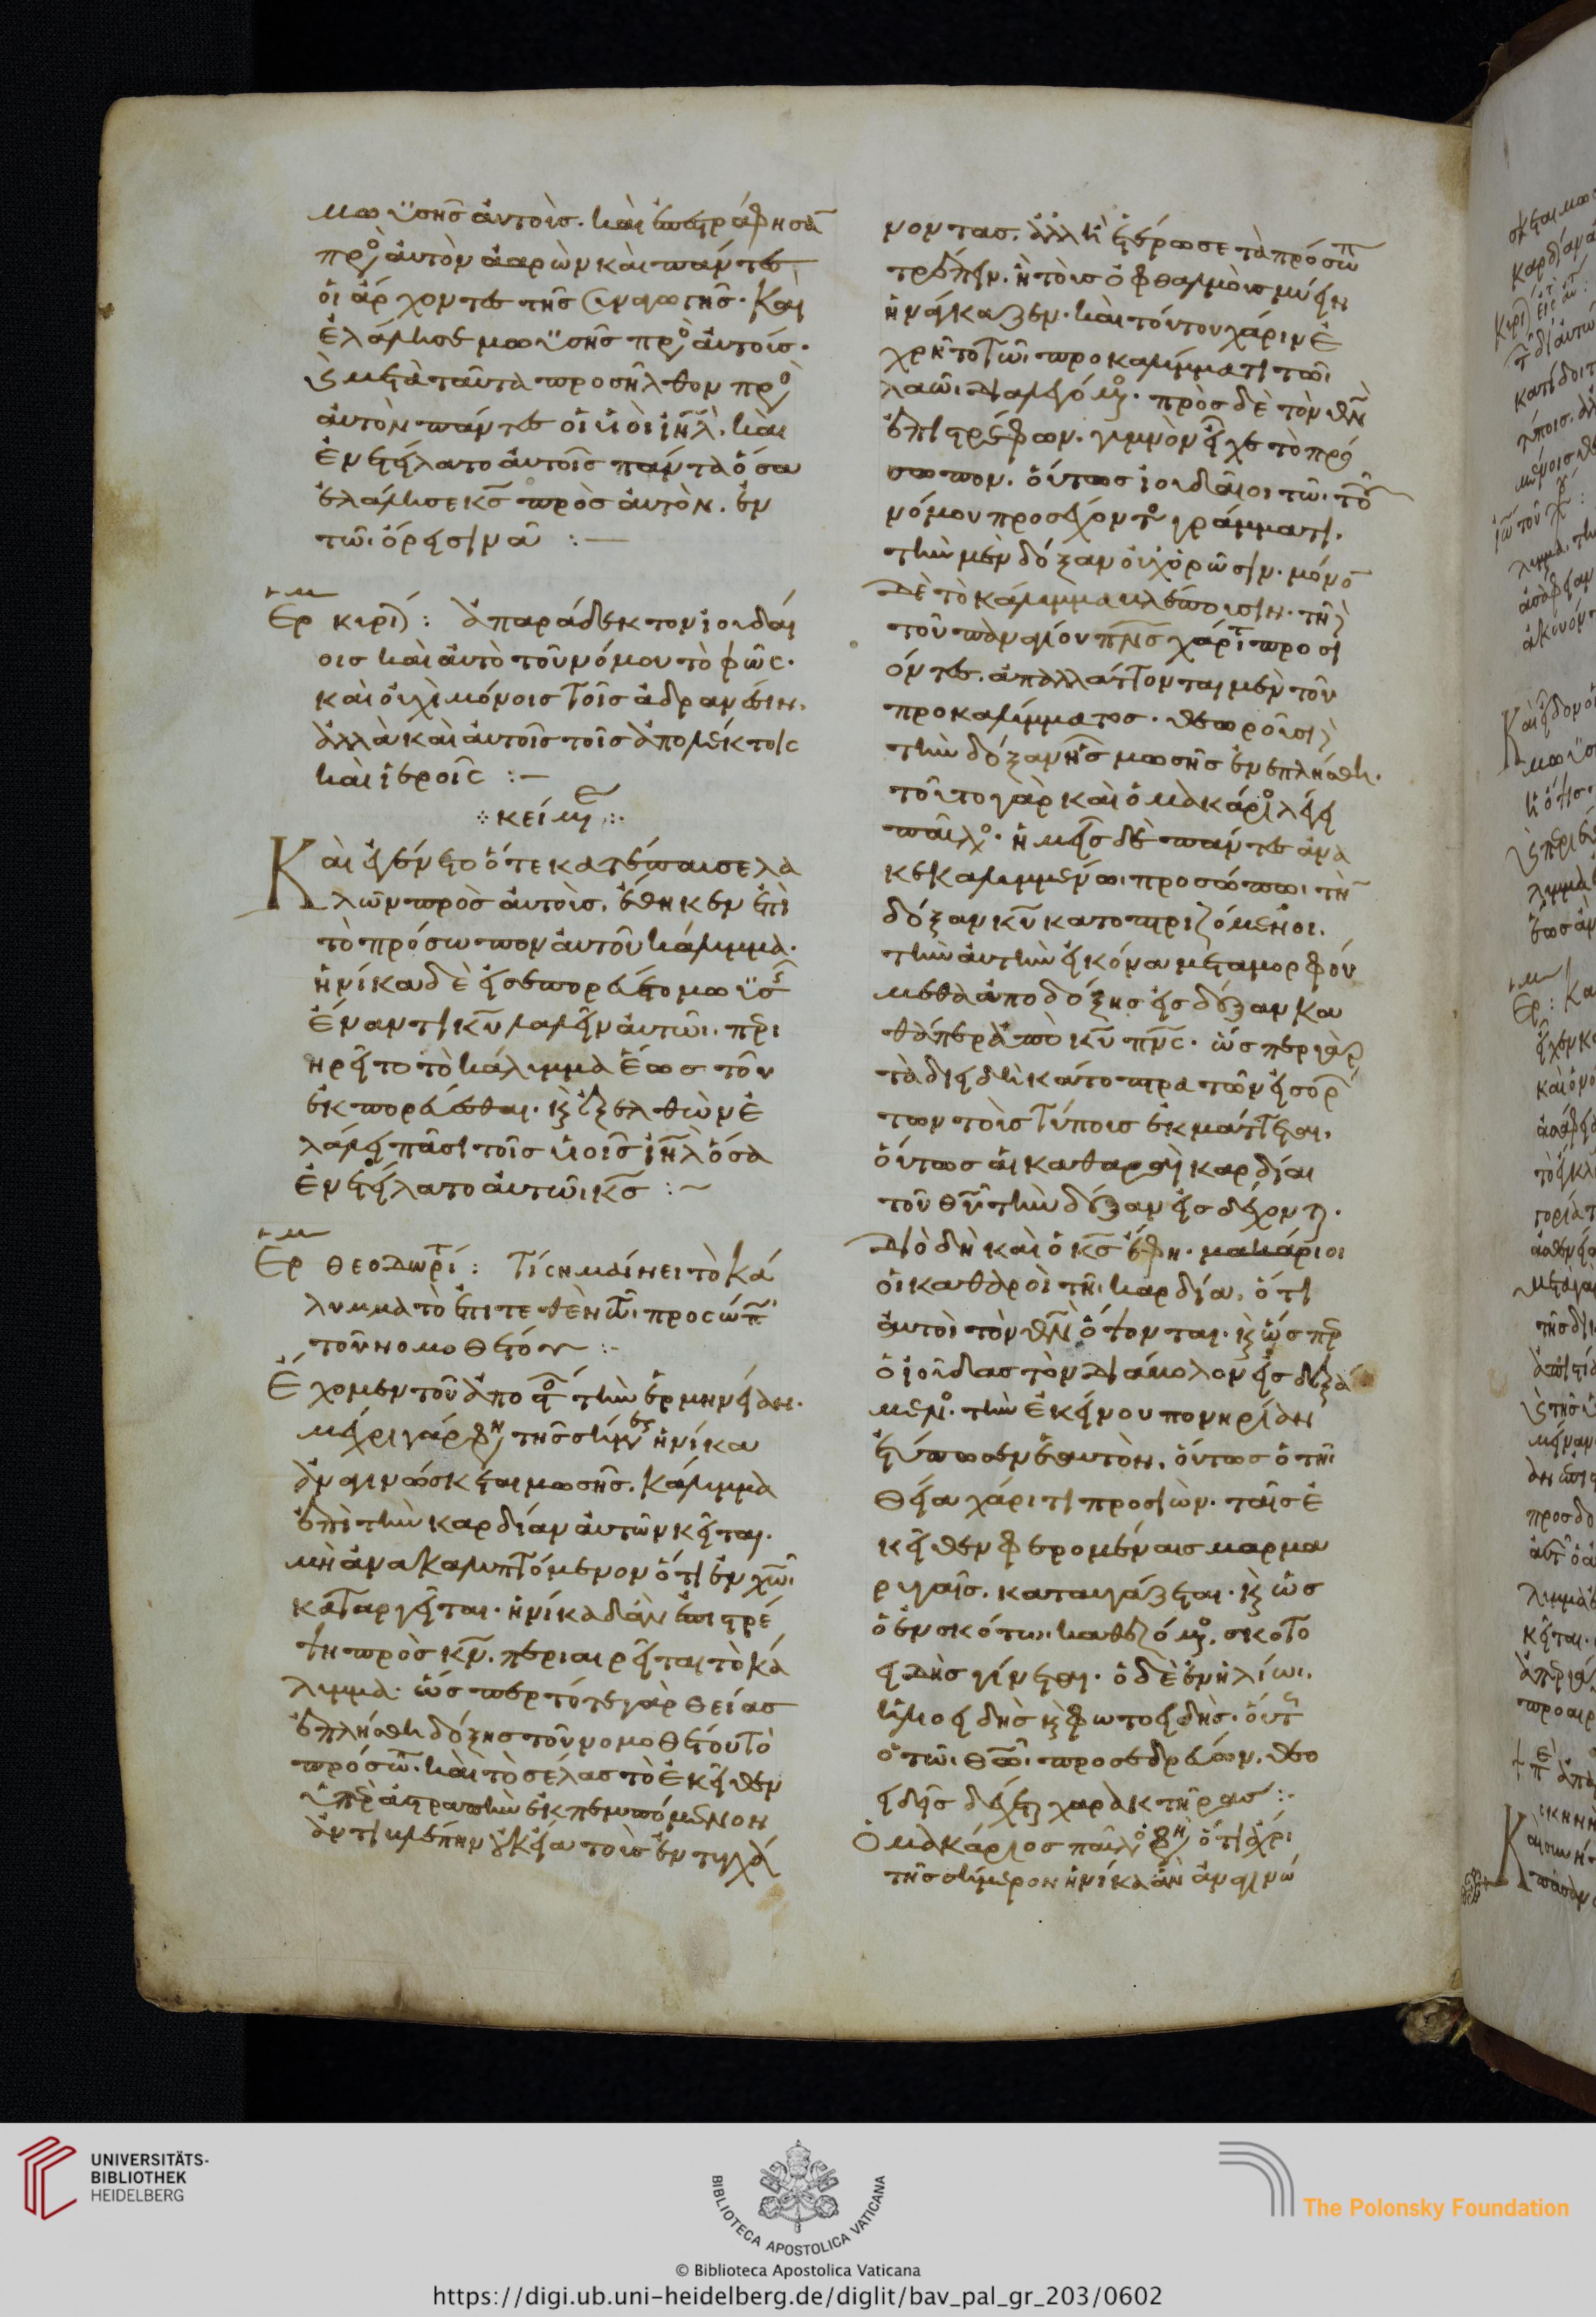 μωϋσῆς αὐτοὺς. καὶ ἐπεστράφησα̅
πρὸς αὐτὸν ἀαρὼν καὶ πάντες
οἱ ἄρχοντες τῆς συναγωγῆς. καὶ
ἐλάλησε μωϋσῆς πρὸς αὐτούς.
καὶ μετὰ ταῦτα προσῆλθον πρὸς
αὐτὸν πάντες οἱ υἱοὶ ιηλ. καὶ
ἐνετείλατο αὐτοῖς πάντα ὅσα
ἐλάλησε κς πρὸς αὐτὸν. ἐν
τῶι ὄρει σινᾶ :—
Ερμ κυριλ : ἀπαράδεκτον ἰουδαί
οις καὶ αὐτὸ τοῦ νόμου τὸ φῶς.
καὶ οὐχὶ μόνοις τοῖς ἀδρανέσιν.
ἀλλὰ καὶ αὐτοῖς τοῖς ἀπολέκτοις
καὶ ἱεροῖς :—
κείμε
Καὶ ἐγένετο ὅτε κατέπαυσε λα
λῶν πρὸς αὐτοὺς. ἔθηκεν ἐπὶ
τὸ πρόσωπον αὐτοῦ κάλυμμα.
ἡνίκα δὲ εἰσεπορεύετο μωϋσ
ἔναντι κυ λαλεῖν αὐτῶι. περι
ηρεῖτο τὸ κάλυμμα ἕως τοῦ
ἐκπορεύεσθαι. καὶ ἐξελθὼν ἐ
λάλει πᾶσι τοῖς υἱοῖς ιηλ ὅσα
ἐνετείλατο αὐτῶι κς :~
Ερμ θεοδωρίτ : Τί σημαίνει τὸ κά
λυμμα τὸ ἐπιτεθὲν τῶ προσώπ
τοῦ νομοθέτου :-
Ἔχομεν τοῦ ἀποστό τὴν ἑρμηνείαν.
μέχρι γάρ φη τῆς σήμερον ἡνίκα
ἀναγινώσκεται μωσῆς. κάλυμμα
ἐπὶ τὴν καρδίαν αὐτῶν κεῖται.
μὴ ἀνακαλυπτόμενον ὅτι ἐν χωι
καταργεῖται. ἡνίκα δ᾽ ἂν ἐπιστρέ
ψη πρὸς κν. περιαιρεῖται τὸ κά
λυμμα. ὥσπερ τότε γὰρ θείας
ἐπλήσθη δόξης τοῦ νομοθέτου τὸ
πρόσω. καὶ τὸ σέλας τὸ ἐκεῖθεν
ὑπὲρ ἀστραπὴν ἐκπεμπόμενον
ἀντιβλέπειν οὐκ εἴα τοὺς ἐντυγχά
νοντας. ἀλλ᾽ ἢ ἑτέρωσε τὰ πρόσωπ
τρέπειν. ἢ τοὺς ὀφθαλμοὺς μύειν
ἠνάγκαζεν. καὶ τούτου χάριν ἐ
χρῆτο τῶι προκαλύμματι τῶι
λαῶι διαλεγόμ. πρὸς δὲ τὸν θν
ἐπιστρέφων. γυμνὸν εἶχε τὸ πρό
σωπον. οὕτως ἰουδαῖοι τῶι τοῦ
νόμου προσέχοντ γράμματι.
τὴν μὲν δόξαν οὐχ ὁρῶσιν. μόνο
δὲ τὸ κάλυμμα βλέπουσιν. τῆ
τοῦ παναγίου πνς χάριτι προσι
όντες. ἀπαλλάττονται μὲν τοῦ
προκαλύμματος. θεωροῦσι
τὴν δόξαν ἧς μωσῆς ἐνεπλήσθη.
τοῦτο γὰρ καὶ ὁ μακάρι λέγει
παῦλο. ἡμεῖς δὲ πάντες ἀνα
κεκαλυμμένωι προσώπωι τὴν
δόξαν κυ κατοπτριζόμενοι.
τὴν αὐτὴν εἰκόνα μεταμορφού
μεθα ἀπὸ δόξης εἰς δόξαν κα
θάπερ ἀπὸ κυ πνς. ὥσπερ γὰρ
τὰ διειδῆ κάτοπτρα τῶν εἰσορ
των τοὺς τύπους ἐκμάττεται.
οὕτως αἱ καθαραὶ καρδίαι
τοῦ θυ τὴν δόξαν εἰσδέχοντ.
Διὸ δὴ καὶ ὁ κς ἔφη. μακάριοι
οἱ καθαροὶ τῆ καρδία. ὅτι
αὐτοὶ τὸν θν ὄψονται. καὶ ὥσπερ
ὁ ἰούδας τὸν διάβολον εἰσδεξά
μεν. τὴν ἐκείνου πονηρίαν
ἐτύπωσεν ἑαυτὸν. οὕτως ὁ τῆ
θεία χάριτι προσιὼν. ταῖς ἐ
κεῖθεν φερομέναις μαρμα
ρυγαῖς. καταυγάζεται. καὶ ὡς
ὁ ἐν σκότωι καθεζόμ. σκοτο
ειδὴς γίνεται. ὁ δὲ ἐν ἡλίωι.
ἡλιοειδὴς καὶ φωτοειδὴς. οὕτ
ὁ τῶι θωι προσεδρεύων. θεο
ειδεῖς δέχετ χαρακτῆρας :-
Ὁ μακάριος παῦλο φη, ὅτι ἄχρι
τῆς σήμερον ἡνίκα ἂν ἀναγινώ
UNIVERSITÄTS-
BIBLIOTHEK
HEIDELBERG
BIBLIOTECA APOSTOLICA VATICANA
The Polonsky Foundation
© Biblioteca Apostolica Vaticana
https://digi.ub.uni-heidelberg.de/diglit/bav_pal_gr_203/0602